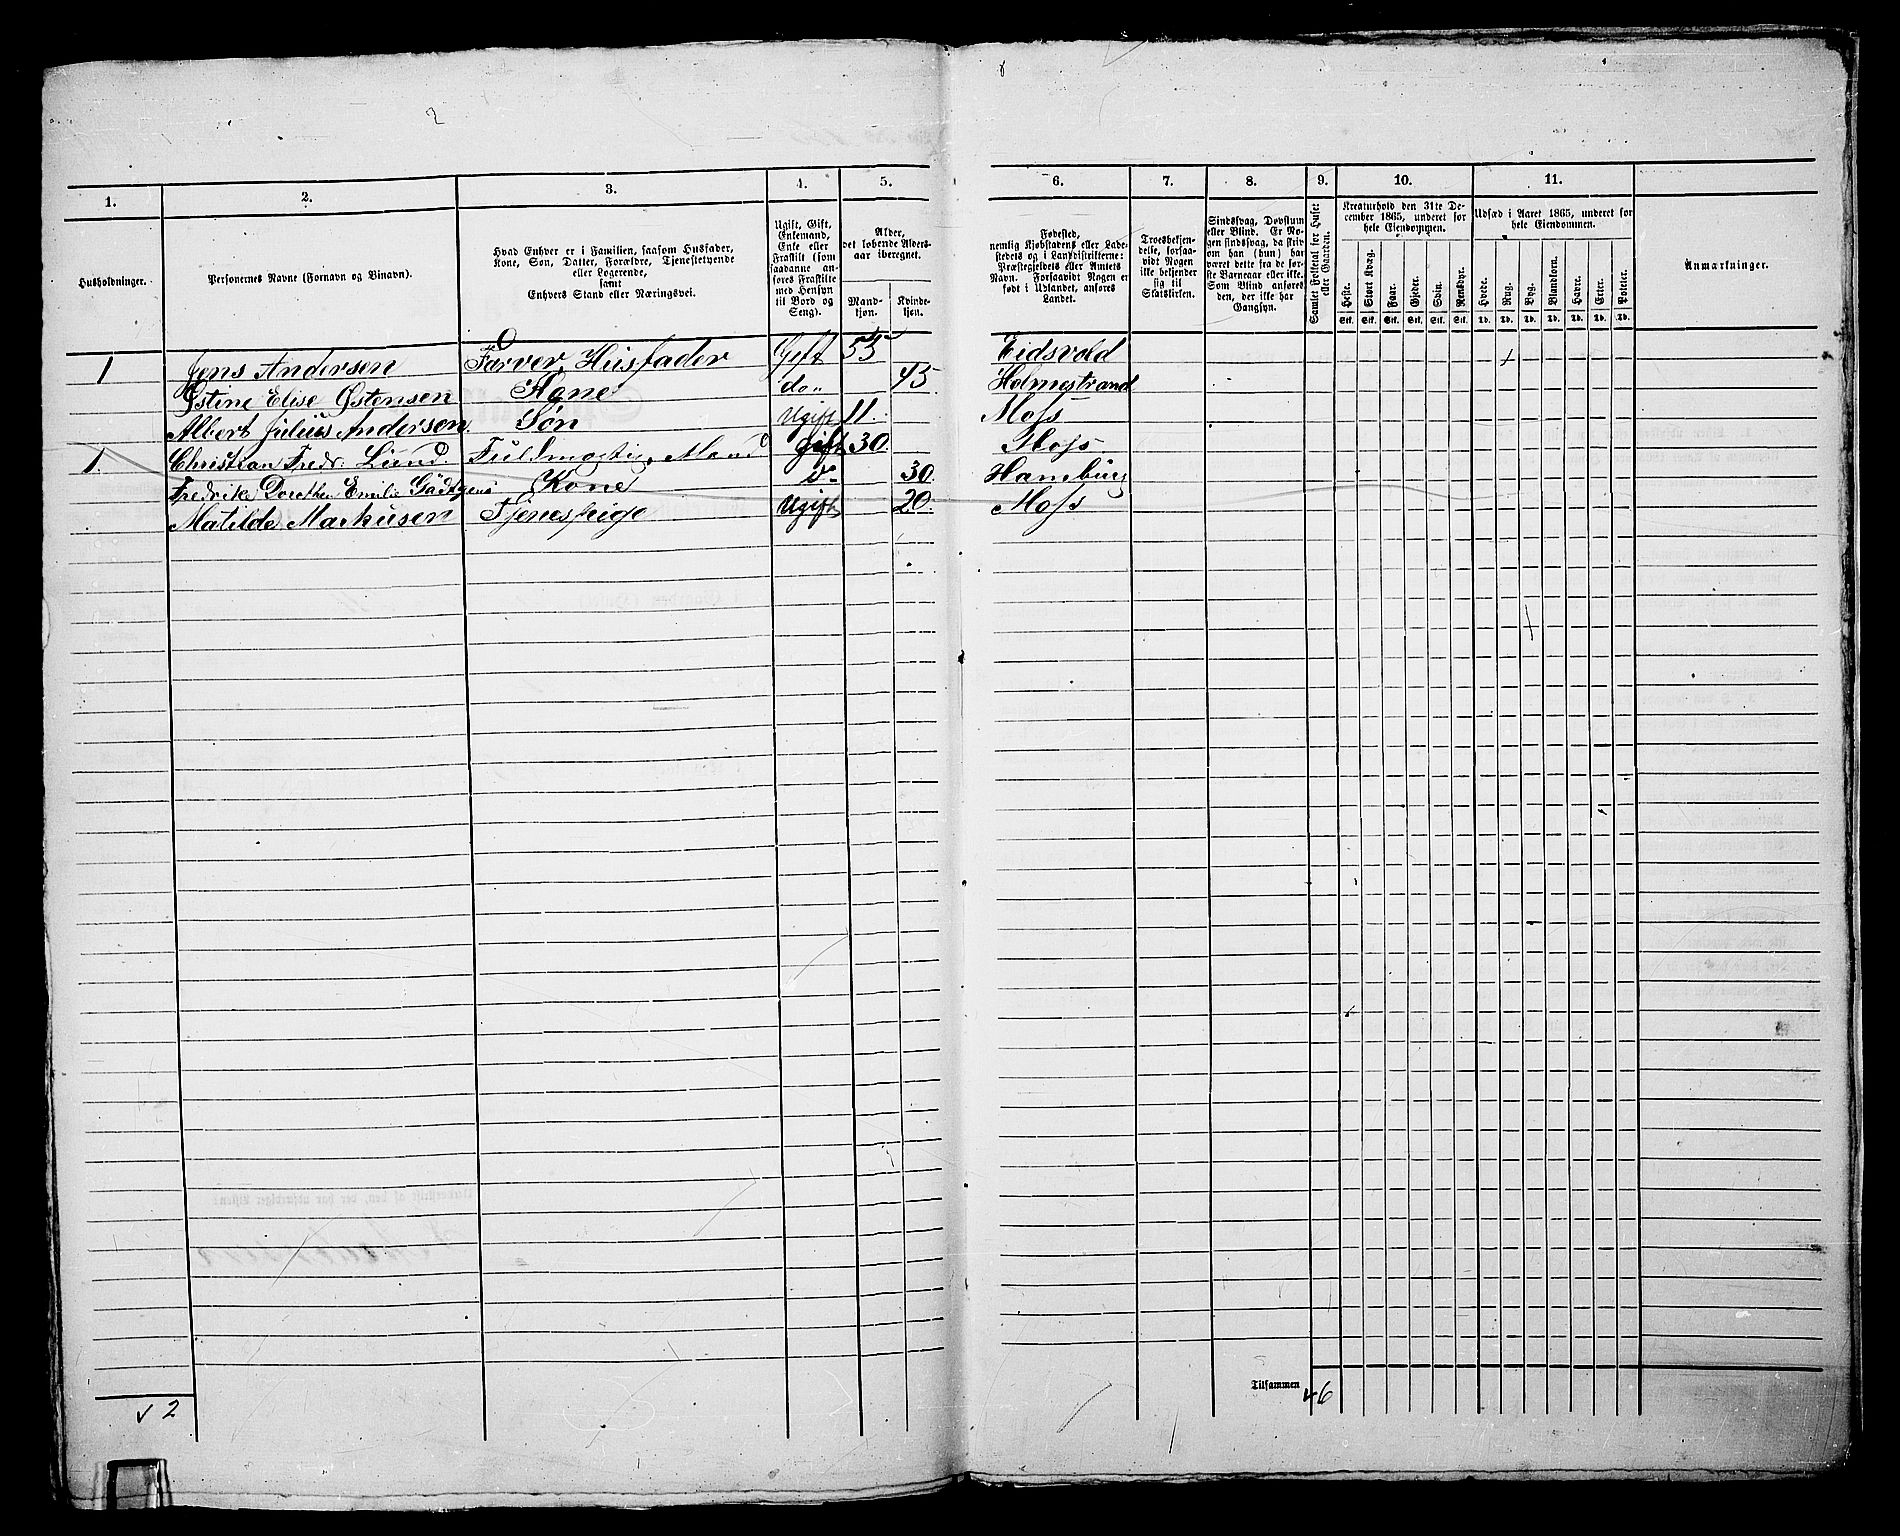 2
1. 2. 3. 4. 5. 6. 7. 8. 9. 10. 11.
Husholdninger.
Personernes Navne (Fornavn og Binavn).
Hvad Enhver er i Familien, saasom Husfader,
Kone, Søn, Datter, Forældre, Tjenestetyende
eller Logerende,
samt
Enhvers Stand eller Næringsvei.
Ugift, Gift,
Enkemand,
Enke eller
Fraskilt (som
saadanne an-
føres Fraskilte
med Hensyn
til Bord og
Seng).
Alder,
det løbende Alders-
aar iberegnet.
Mand-
kjøn.
Kvinde-
kjøn.
Fødested,
nemlig Kjøbstadens eller Lade-
stedets og i Landdistrikterne:
Præstegjeldets eller Amtets
Navn. Forsaavidt Nogen er
født i Udlandet, anføres
Landet.
Troesbekjen-
delse, forsaa-
vidt Nogen
ikke bekjender
sig til
Statskirken.
Sindssvag, Døvstum
eller Blind. Er No-
gen sindssvag, da skriv
om han (hun) har
været dette fra de før-
ste Barneaar eller ikke.
Som Blind anføres
den, der ikke har
Gangsyn.
Samlet Folketal for Huset
eller Gaarden.
Kreaturhold den 31te De-
cember 1865, underet for
hele Eiendommen.
Heste. Stort Kvæg. Faar. Gjeder. Svin. Rensdyr.
Stk. Stk. Stk. Stk. Stk. Stk.
Udsæd i Aaret 1865, underet for
hele Eiendommen.
Hvede. Rug. Byg. Blandkorn. Havre. Erter. Poteter.
Td. Td. Td. Td. Td. Td. Td.
Anmærkninger.
1 Jens Andersen Farver, Husfader Gift 55 Eidsvold
Østine Elise Østensen Kone do 45 Holmestrand
Albert Julius Andersen Søn Ugift 11. Moss
1. Christian Fredr. Lund. Fuldmægtig, Mand gift 30. Moss
Fredrike Dorothea Emilie Kone 30. Hamburg
Matilde Markusen Tjenestpige Ugift 20. Moss
Tilsammen 6
2